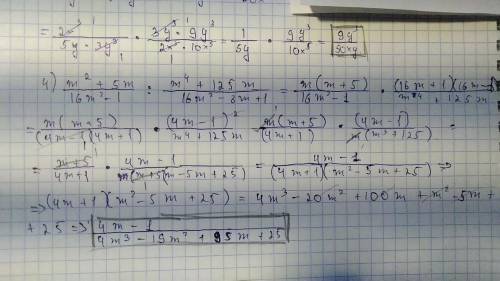 = 2x³ / 5y · 3y³ · 3y³ · 9y³ / 2x³ · 10x⁵ = 1 / 5y · 9y³ / 10x⁵ = 9y / 50xy
4) m² + 5m / 16m² - 1 : m⁴ + 125m / 16m² - 8m + 1 = m(m + 5) / 16m² - 1 · (16m + 1)(16m / m⁴ + 125m
= m(m + 5) / (4m - 1)(4m + 1) · (4m - 1)² / m⁴ + 125m = m(m + 5) / (4m + 1) · (4m - 1) / m(m³ + 125) =
= m + 5 / 4m + 1 · 4m - 1 / (m + 5)(m² - 5m + 25) = 4m - 1 / (4m + 1)(m² - 5m + 25) ⇒
⇒ (4m + 1)(m² - 5m + 25) = 4m³ - 20m² + 100m + m² - 5m +
+ 25 ⇒ 4m - 1 / 4m³ - 19m² + 95m + 25